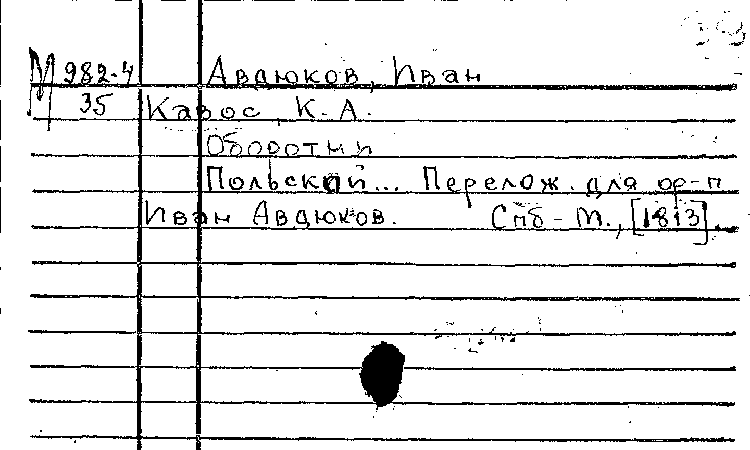 М 982-4 Авдюков, Иван
35 Кавос, К. А.
Оборотни
Польской... Перелож. для ор-п
Иван Авдюков. Спб-М., [1813].